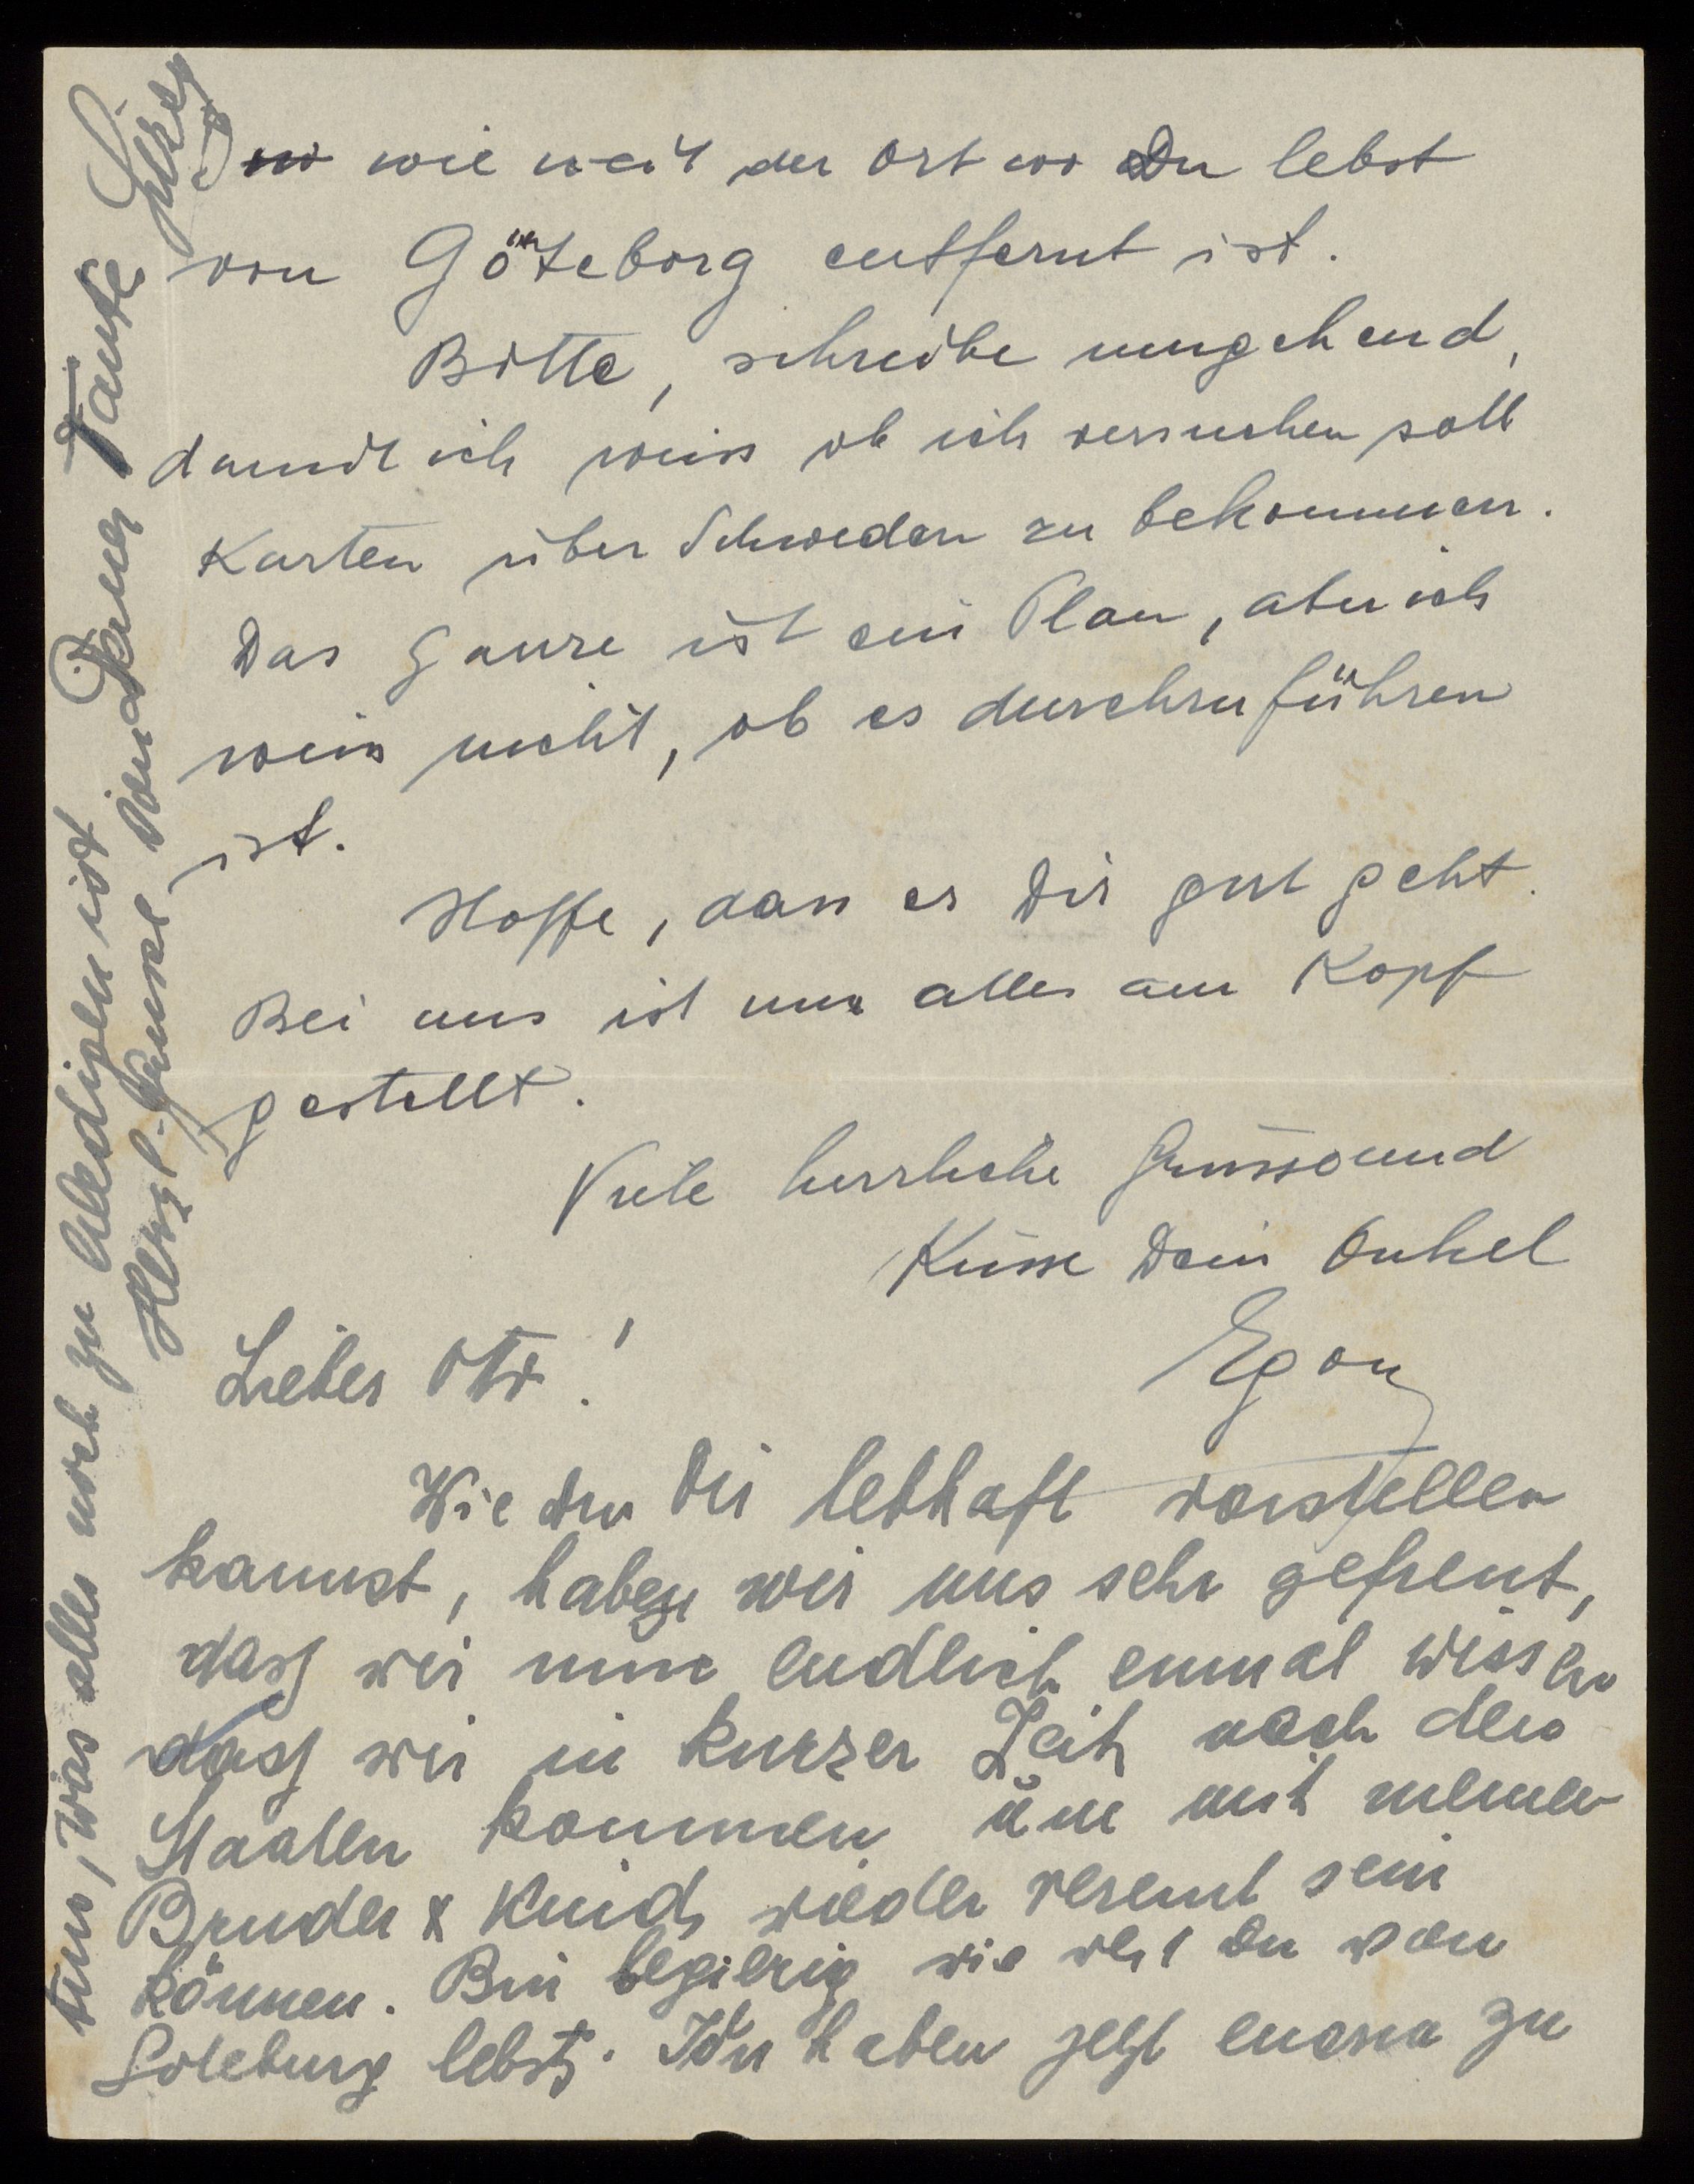 wie weit der Ort wo Du lebst
von Göteborg entfernt ist.
Bitte, schreibe umgehend,
damit ich weiss ob ich versuchen soll
Karten über Schweden zu bekommen.
Das Ganze ist ein Plan, aber ich
weiss nicht, ob es durchzuführen
ist.
Hoffe, dass es Dir gut geht.
Bei uns ist nun alles am Kopf
gestellt.
Viele herzliche Grüsse und
Küsse Dein Onkel
Egon
Lieber Otto!
Wie du Dir lebhaft vorstellen
kannst, haben wir uns sehr gefreut,
dass wir nun endlich einmal wissen
dass wir in kurzer Zeit nach den
Staaten kommen um mit meinem
Bruder & Kind wieder vereint sein
können. Bin begierig wie weit Du von
Goteburg lebst. Wir haben jetzt enorm zu
tun, was alles noch zu erledigen ist
Herzl. Grüsse von Deiner Tante